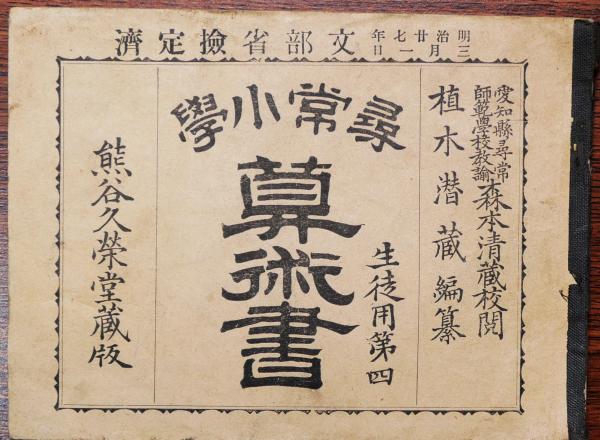 明治廿七年
三月一日
文部省撿定濟
愛知縣尋常
師範學校教諭
森本清藏校閲
植木潜藏編纂
尋常小學
算術書
生徒用第四
熊谷久榮堂藏版